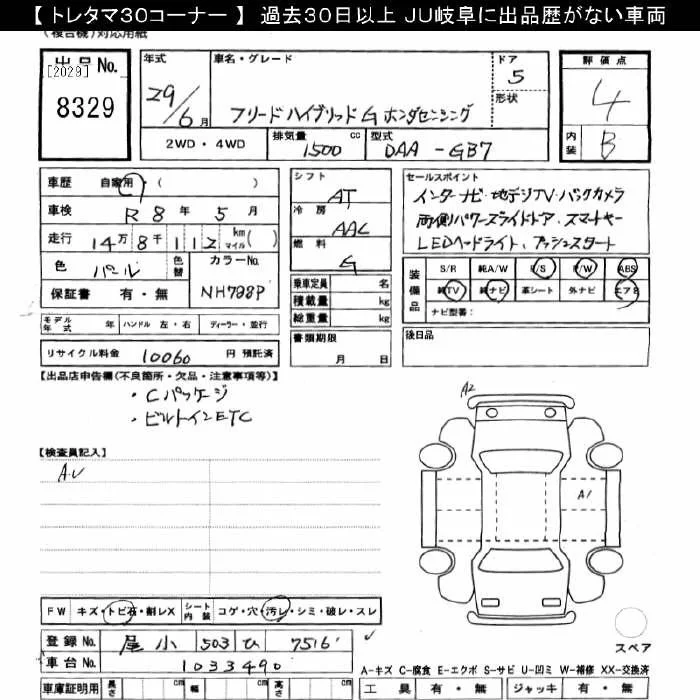 【 トレタマ30コーナー 】 過去30日以上 JU岐阜に出品歴がない車両
(複合機)対応用紙
出品No.
[2029]
8329
年式
29/6月
車名・グレード
フリードハイブリッドG ホンダセンシング
ドア
5
形状
評価点
4
内装
B
2WD・4WD
排気量
1500
cc
型式
DAA-GB7
車歴
自家用・(    )
車検
R8年5月
走行
14万8千112
km
マイル( )
色
パール
色替
カラーNo.
NH788P
保証書 有・無
シフト
AT
冷房
AAC
燃料
G
乗車定員 名
積載量 kg
総重量 kg
セールスポイント
インターナビ・地デジTV・バックカメラ
両側パワースライドドア、スマートキー
LEDヘッドライト、プッシュスタート
装備品
S/R 純A/W P/S P/W ABS
純TV 純ナビ 革シート 外ナビ エアB
ナビ型番:
モデル年式 年 ハンドル 左・右 ディーラー・並行
書類期限
月 日
後日品
リサイクル料金 10060 円 預託済
【出品店申告欄(不良箇所・欠品・注意事項等)】
・Cパッケージ
・ビルトインETC
【検査員記入】
A.U
A2
A1
FW キズ・トビ石・割レX シート内装 コゲ・穴・汚レ・シミ・破レ・スレ
登録No. 尾小 503 ひ 7516
車台No. 1033490
スペア
A-キズ C-腐食 E-エクボ S-サビ U-凹ミ W-補修 XX-交換済
車庫証明用 長さ cm 幅 cm 高さ cm
工具 有・無 ジャッキ 有・無